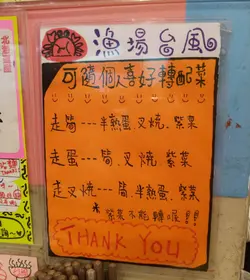 漁場台風
可隨個人喜好轉配菜
走筍---半熟蛋、叉燒、紫菜
走蛋---筍、叉燒、紫菜
走叉燒---筍、半熟蛋、紫菜
*紫菜不能轉喔!!!
THANK YOU